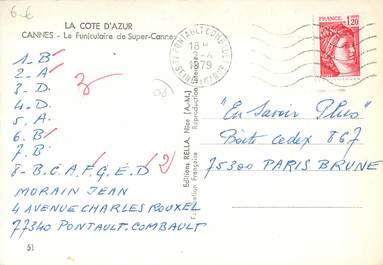 6-6
LA COTE D'AZUR
CANNES - Le Funiculaire de Super-Cannes
1-B
2-A
3-D
4-D.
5-A
6-B
7-B
8-B.C.A.F.G.E.D
3
2
MORAIN JEAN
4 AVENUE CHARLES ROUXEL
77340 PONTAULT-COMBAULT
51
Editions RELLA, Nice (A.-M.)
Fabrication Française
PONTAULT COMBAULT
18 H
2-4
1979
FRANCE
1,20
"En Savoir Plus"
Boîte cedex 867
75300 PARIS BRUNE